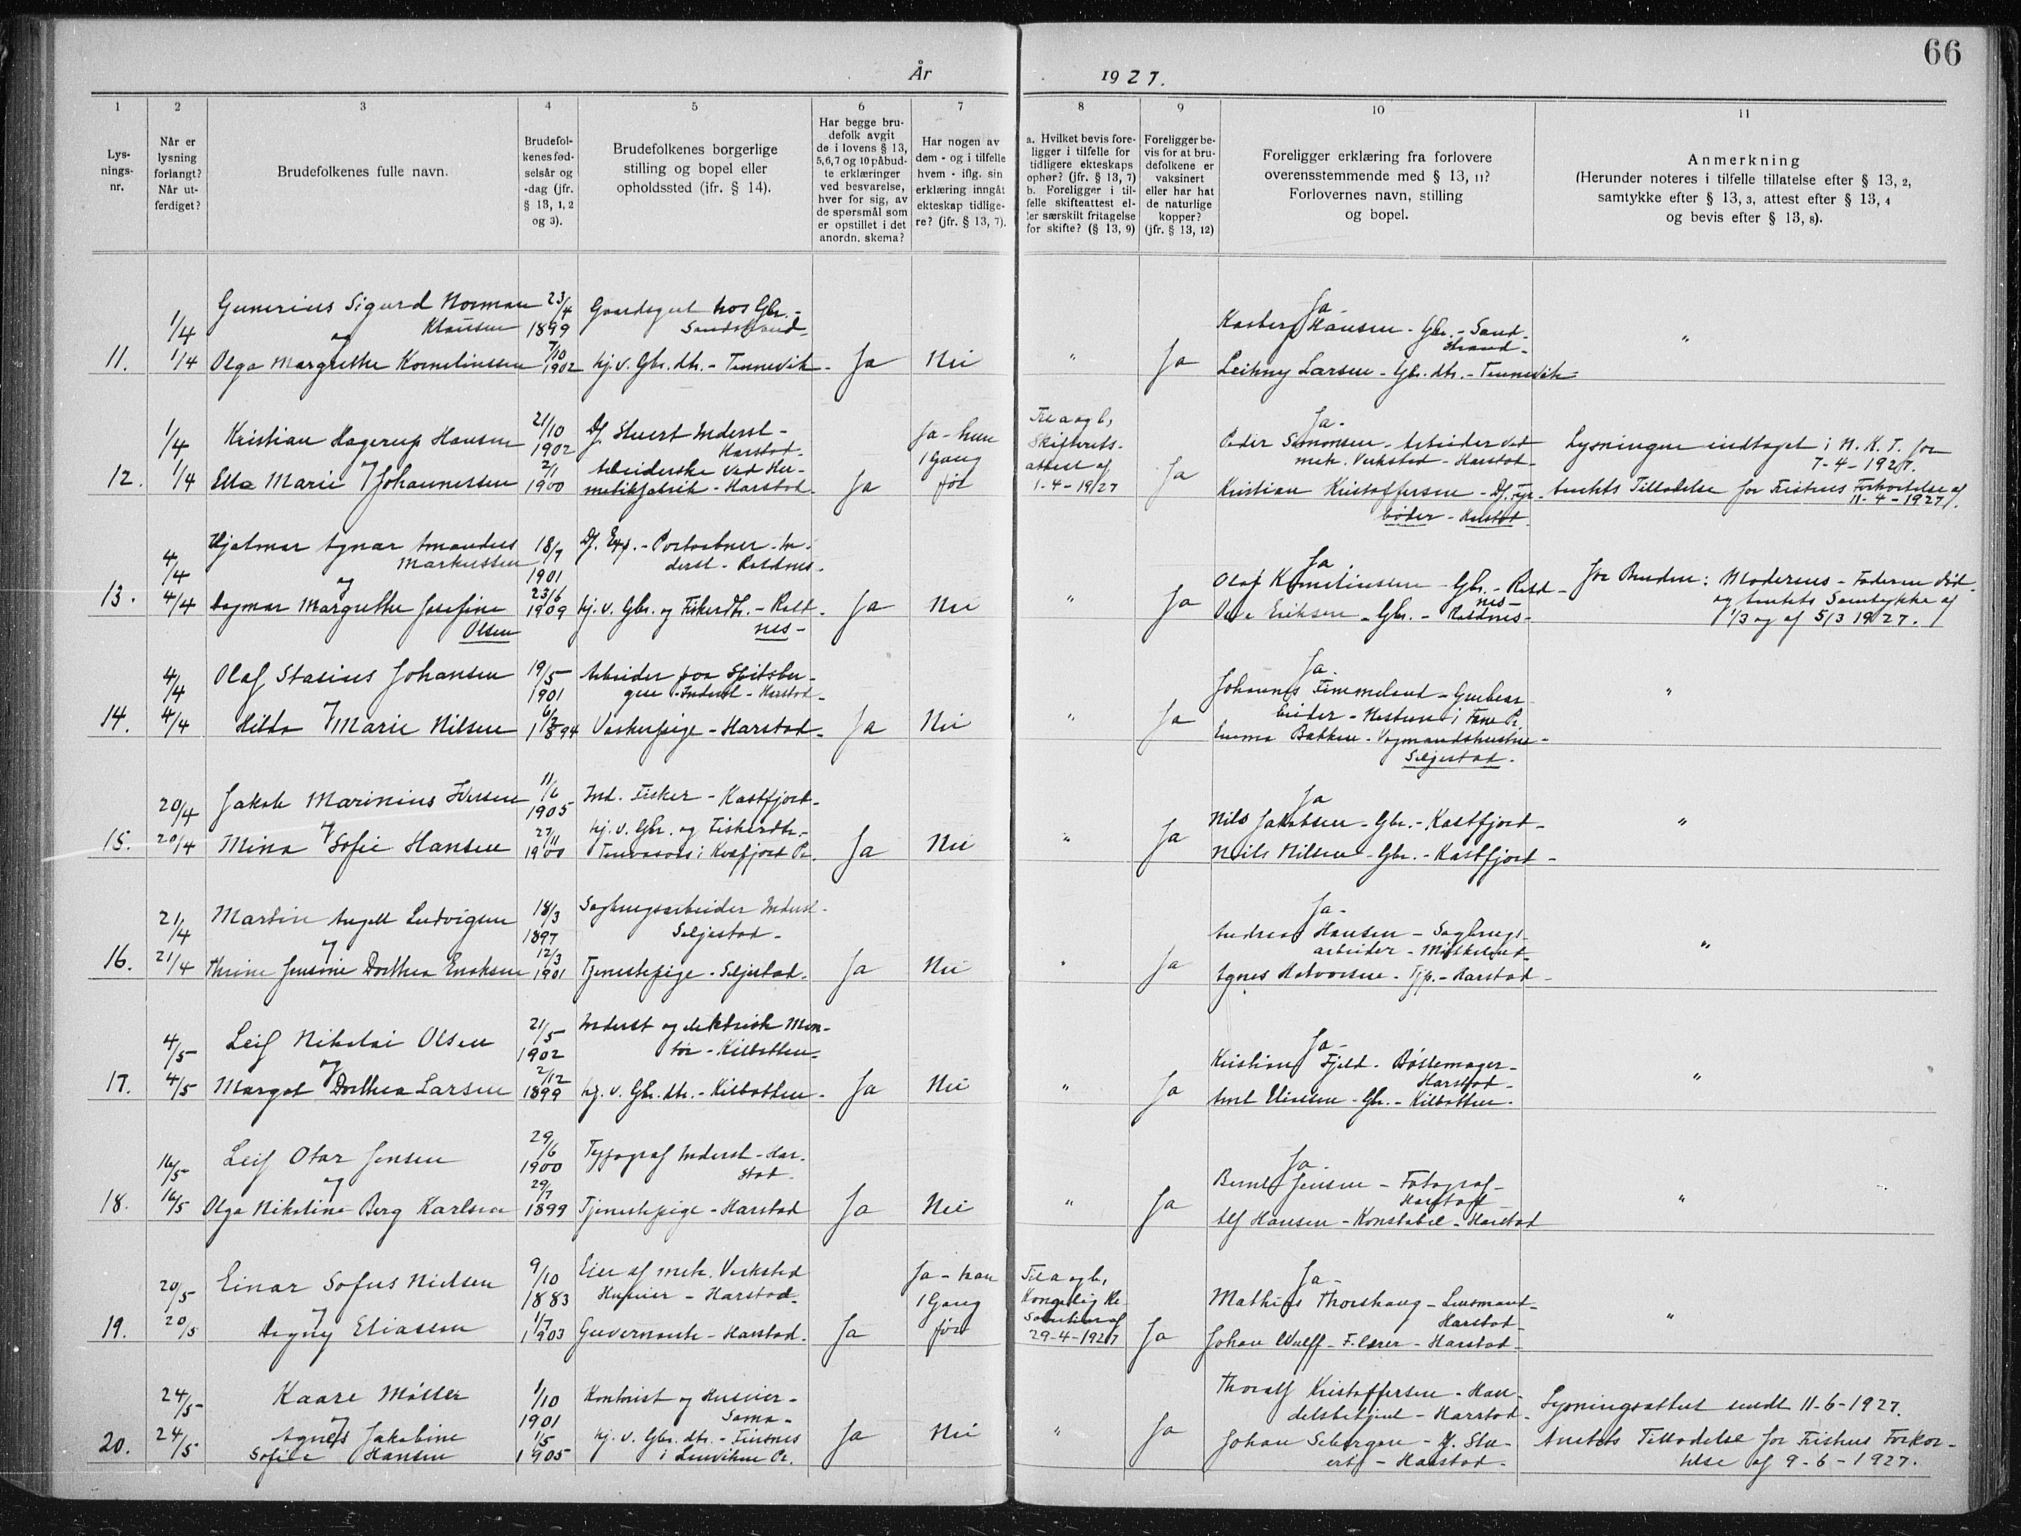 66
År 1927.
1 2 3 4 5 6 7 8 9 10 11
Lys-
nings-
nr.
Når er
lysning
forlangt?
Når ut-
ferdiget?
Brudefolkenes fulle navn.
Brudefol-
kenes fød-
selsår og
-dag (jfr.
§ 13, 1, 2
og 3).
Brudefolkenes borgerlige
stilling og bopel eller
opholdssted (jfr. § 14).
Har begge bru-
defolk avgit
de i lovens § 13,
5,6,7 og 10 påbud-
te erklæringer
ved besvarelse,
hver for sig, av
de spørsmål som
er opstillet i det
anordn. skema?
Har nogen av
dem - og i tilfelle
hvem - iflg. sin
erklæring inngåt
ekteskap tidlige-
re? (jfr. § 13, 7).
a. Hvilket bevis fore-
ligger i tilfelle for
tidligere ekteskaps
ophør? (jfr. § 13, 7)
b. Foreligger i til-
felle skifteattest el-
ler særskilt fritagelse
for skifte? (§ 13, 9)
Foreligger be-
vis for at bru-
defolkene er
vaksinert
eller har hat
de naturlige
kopper?
(jfr. § 13, 12)
Foreligger erklæring fra forlovere
overensstemmende med § 13, 11?
Forlovernes navn, stilling
og bopel.
Anmerkning
(Herunder noteres i tilfelle tillatelse efter § 13, 2,
samtykke efter § 13, 3, attest efter § 13, 4
og bevis efter § 13, 8).
11.
1/4
1/4
Gunerius Sigurd Norman
og Klausen
Olga Margrethe Kornelinssen
23/4
1899
7/10
1902
Gaardsgut hos Gbr. -
Sandstrand -
hj. v. Gbr. dtr. - Tennevik -
Ja
Nei
"
Ja
Ja -
Hansen - Gbr. - Sand-
strand -
Larsen - Gbr. dtr. - Tennevik -
"
12.
1/4
1/4
Kristian Hagerup Hansen
og
Ella Marie Johannessen
21/10
1902
2/1
1900
Df. Stuert Inderst -
Harstad -
Arbeiderske ved Her-
metikfabrik - Harstad -
Ja
Ja - hun
1 Gang
før
Til a og b,
Skifterets-
attest af
1-4-1927
Ja
Ja -
Peder Simonsen - Arbeider ved
mek. Verksted - Harstad -
Kristian Kristoffersen - Df. Fyr-
bøder - Harstad
Lysningen indtaget i N. K. T. for
7-4-1927.
Amtets Tilladelse for Fristens Forkortelse af
11-4-1927.
13.
4/4
4/4
Hjalmar Agnar Amandus
Markussen
og
Dagmar Margrethe Josefine
Olsen
18/7
1901
23/6
1909
Df. Exp. - Postaabner - In-
derst - Roldnes -
hj. v. Gbr. og Fiskerdtr. - Rold-
nes -
Ja
Nei
"
Ja
Ja.
Olaf Kornelinssen - Gbr. - Rold-
nes -
Eriksen - Gbr. - Roldnes -
For Bruden: Moderens - Faderen død -
og Amtets Samtykke af
1/3 og af 5/3 1927.
14.
4/4
4/4
Olaf Stasius Johansen
og
Hilda Marie Nilsen
19/5
1901
6/2
1894
Arbeider paa Spitsber-
gen - Inderst - Harstad -
Vaskepige - Harstad -
Ja
Nei
"
Ja
Ja -
Johannes Timmeland - Grubear-
beider - Nestun i Fane P.
Emma Bakken - Vognmandshustru -
Seljestad -
"
15.
20/4
20/4
Jakob Marinius Iversen
og
Mina Sofie Hansen
11/6
1905
27/11
1900
Ind. Fisker - Kastfjord -
hj. v. Gbr. og Fiskerdtr. -
i Kvæfjord P.
Ja
Nei
"
Ja
Ja
Nils Jakobsen - Gbr. - Kastfjord -
Nils Nilsen - Gbr. - Kastfjord -
"
16.
21/4
21/4
Martin Angell Ludvigsen
og
Thrine Jensine Dorthea Enoksen
18/3
1897
12/3
1901
Sagbrugsarbeider Inderst -
Seljestad -
Tjenestepige - Seljestad -
Ja
Nei
"
Ja
Ja -
Andreas Hansen - Sagbrugs-
arbeider -
Agnes Halvorsen - Tjp. - Harstad -
"
17.
4/5
4/5
Leif Nikolai Olsen
og
Margot Dorthea Larsen
21/5
1902
2/12
1899
Inderst og elektrisk Mon-
tør - Kilbotten -
hj. v. Gbr. dtr. - Kilbotten -
Ja
Nei
"
Ja
Ja -
Kristian Fjeld - Bøssemager -
Harstad -
- Gbr. - Kilbotten -
"
18.
16/5
16/5
Leif Otar Jensen
og
Olga Nikoline Berg Karlsen
29/6
1900
29/7
1899
Typograf Inderst - Har-
stad -
Tjenestepige - Harstad
Ja
Nei
"
Ja
Ja -
Bernt Jensen - Fotograf -
Harstad -
Alf Hansen - Konstabel - Harstad
"
19.
20/5
20/5
Einar Sofus Nielsen
og
Dagny Eliassen
9/10
1883
1/7
1903
Eier af mek. Verksted
Huseier - Harstad -
Guvernante - Harstad -
Ja
Ja - han
1 Gang
før
Til a og b,
Kongelig Re-
solution af
29-4-1927
Ja
Ja -
Mathias Thorshaug - Lensmand -
Harstad -
Johan Wulff - F. lærer - Harstad -
"
20.
24/5
24/5
Kaare Møller
og
Agnes Jakobine
Sofie Hansen
1/10
1901
1/5
1905
Kontorist og Huseier -
Sama -
hj. v. Gbr. dtr. - Finsnes
i Lenviken P.
Ja
Nei
"
Ja
Thoralf Kristoffersen - Han-
delsbetjent - Harstad -
Johan Seborgen - Df. Stu-
ert - Harstad -
Lysningsattest sendt 11-6-1927.
Amtets Tilladelse for Fristens Forkor-
telse af 9-6-1927.